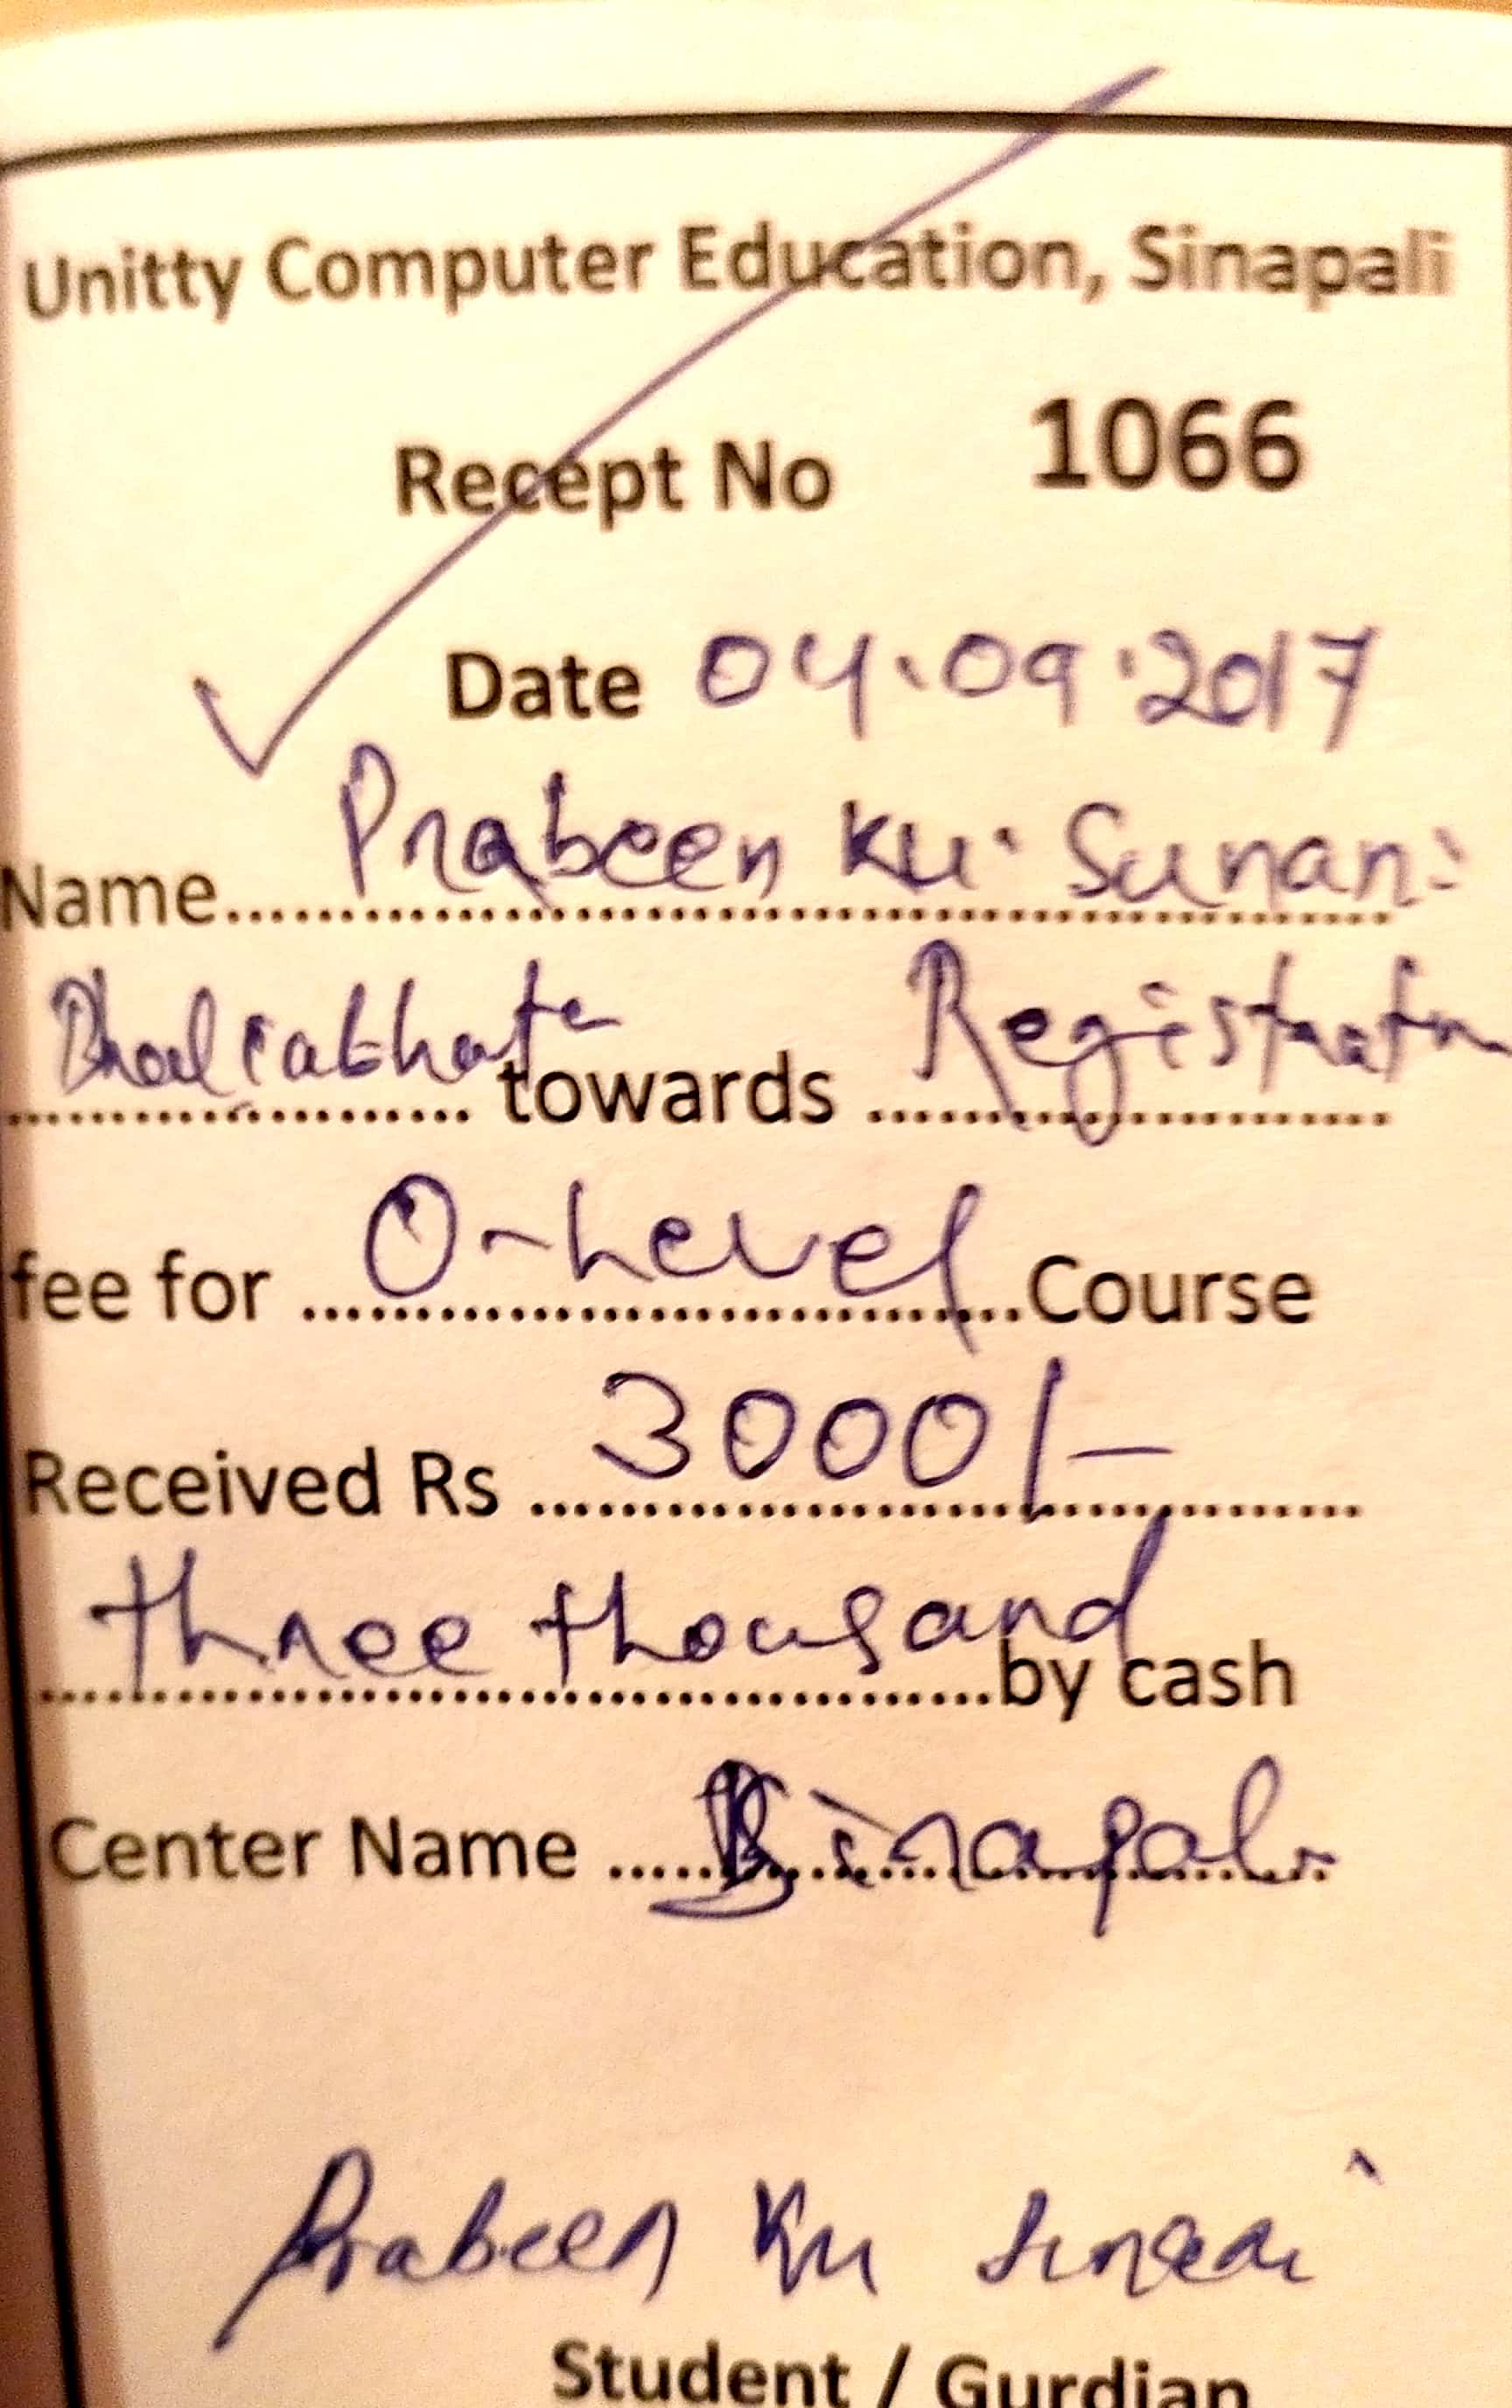 Unitty Computer Education, Sinapali
Recept No 1066
Date 04.09.2017
Name.............. Prabeen Ku. Sunani
.............. towards Registratn
fee for O-Level Course
Received Rs 3000/-
three thousand by cash
Center Name Sinapali
Prabeen Ku Sunani
Student / Gurdian